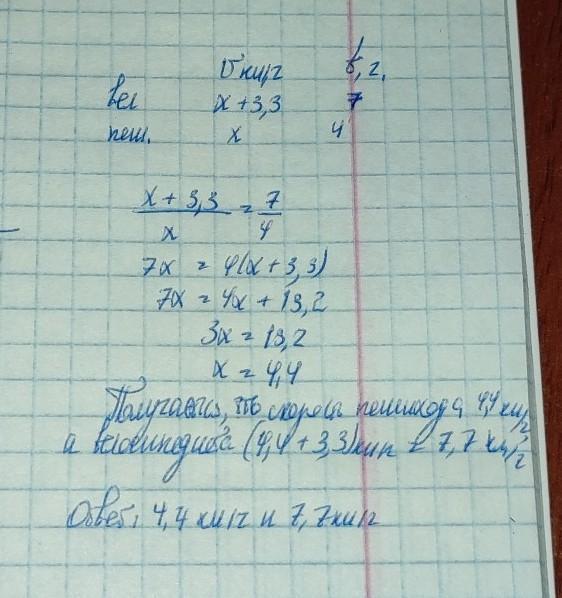 v км/г t, г.
вел x+3,3 7
пеш. x 4
x + 3,3 / x = 7 / 4
7x = 4(x+3,3)
7x = 4x + 13,2
3x = 13,2
x = 4,4
Получается, что скорость пешехода 4,4 км/г
а велосипедиста (4,4 + 3,3) км/г = 7,7 км/г
Ответ: 4,4 км/г и 7,7 км/г